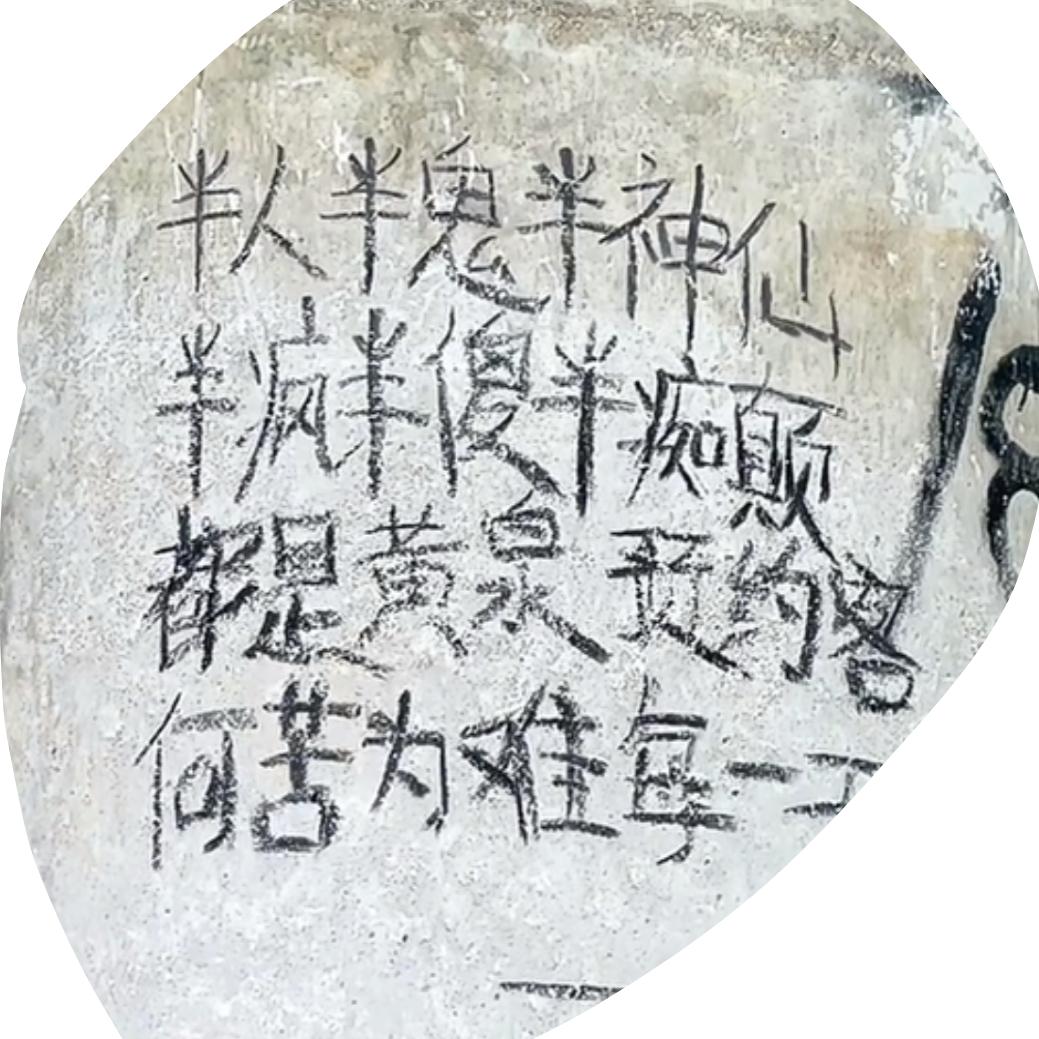 半人半鬼半神仙
半疯半傻半痴颠
都是黄泉预约客
何苦为难每一